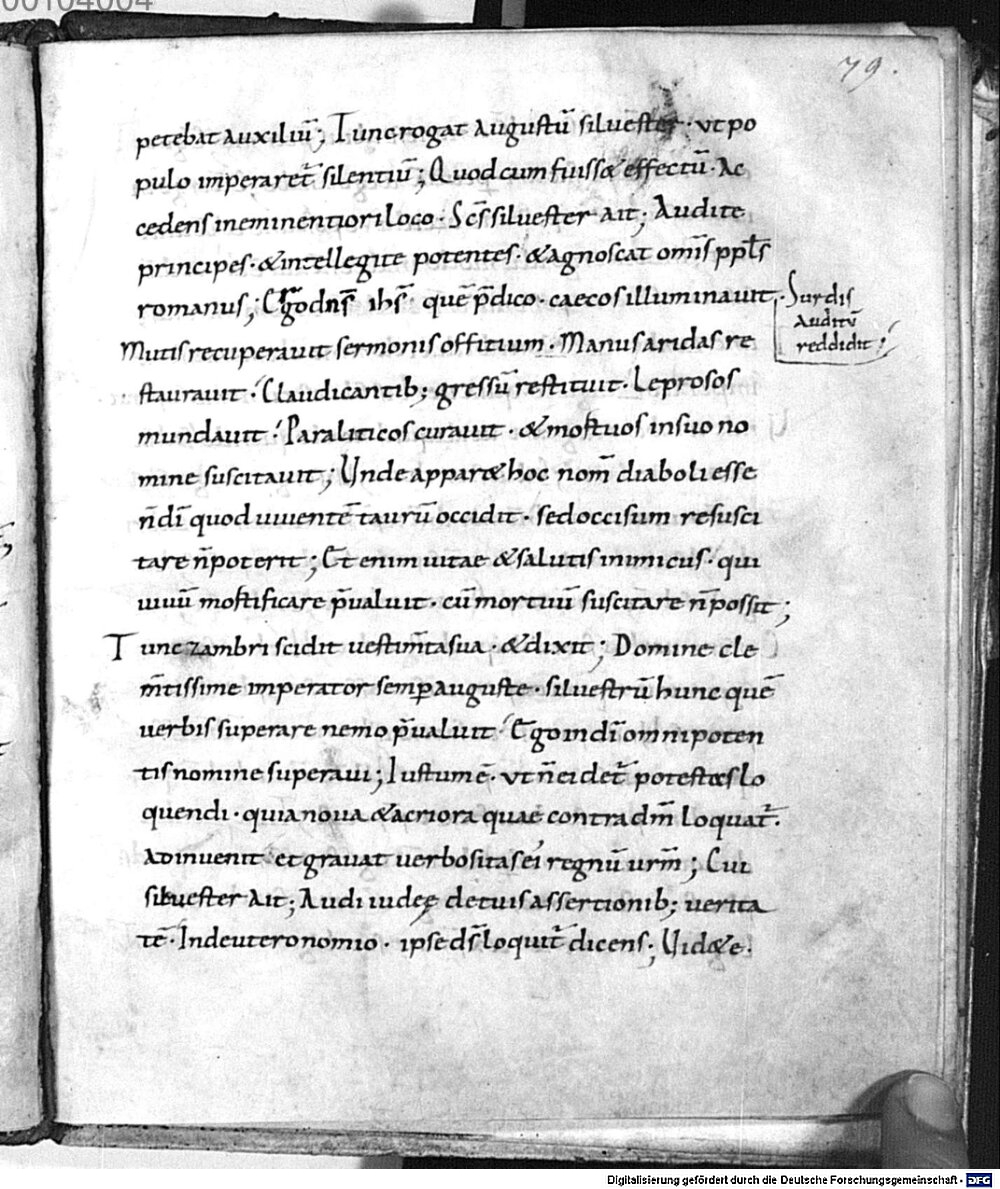 00104004
79.
petebat auxiliū; Tunc rogat augustū silvester · ut po
pulo imperaret̄ silentiū; Quod cum fuiss& effectū · Ac
cedens in eminentiori loco · Sc̄s silvester ait; Audite
principes · & intellegite potentes · & agnoscat om̄is ppl̄s
romanus; dn̄s ih̄s quē p̄dico · caecos illuminavit ·
Surdis
auditū
reddidit;
Mutis recuperavit sermonis offitium · Manus aridas re
stauravit · Claudicantib; gressū restituit · Leprosos
mundavit · Paraliticos curavit · & mortuos in suo no
mine suscitavit; Unde appar& hoc nom̄ diaboli esse
n̄ dī quod viventē taurū occidit · sed occisum resusci
tare n̄ poterit; Et enim vitae & salutis inimicus · qui
vivū mortificare p̄valuit · cū mortuū suscitare n̄ possit;
Tunc zambri scidit vestim̄ta sua · & dixit; Domine cle
m̄tissime imperator semp auguste · silvestrū hunc quē
verbis superare nemo p̄valuit · Ego in dī omnipoten
tis nomine superavi; Iustum ē · ut n̄ ei det̄ potest&s lo
quendi · quia nova & acriora quae contra dm̄ loquat̄ ·
adinvenit et gravat verbositas ei regnū vrm̄; Cui
silvester ait; Audi iudeę de tuis assertionib; verita
tē · In deuteronomio · ipse ds̄ loquit̄ dicens; Uid&e ·
Digitalisierung gefördert durch die Deutsche Forschungsgemeinschaft - DFG